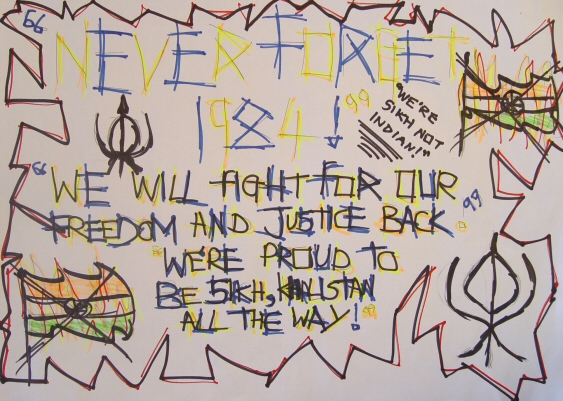 "NEVER FORGET
1984!"
"WE'RE
SIKH NOT
INDIAN!"
"WE WILL FIGHT FOR OUR
FREEDOM AND JUSTICE BACK."
"WE'RE PROUD TO
BE SIKH, KHALISTAN
ALL THE WAY!"